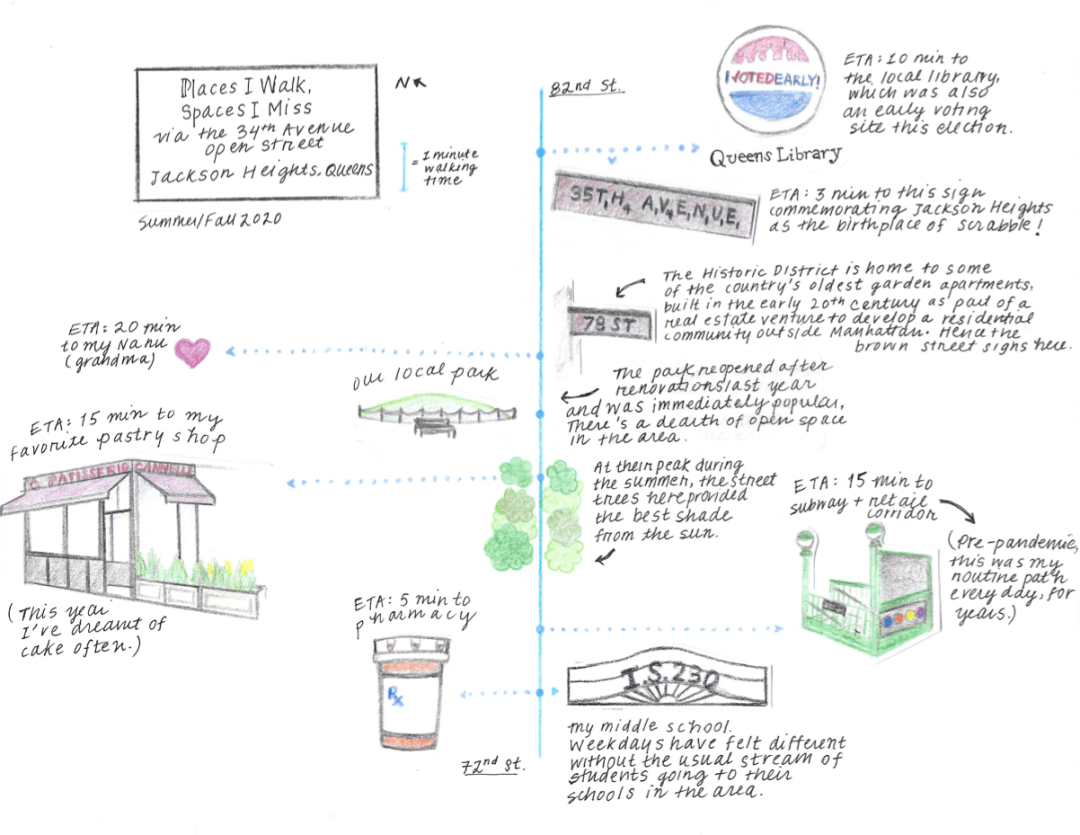 Places I Walk,
Spaces I Miss
via the 34th Avenue
open street
Jackson Heights, Queens
Summer/Fall 2020
N
= 1 minute
walking
time
82nd St.
I VOTED EARLY!
ETA: 10 min to
the local library,
which was also
an early voting
site this election.
Queens Library
35T,H4 A,V4E,N,U,E,
ETA: 3 min to this sign
commemorating Jackson Heights
as the birthplace of Scrabble!
The Historic District is home to some
of the country's oldest garden apartments,
built in the early 20th century as part of a
real estate venture to develop a residential
community outside Manhattan. Hence the
brown street signs here.
78 ST
ETA: 20 min
to my Nanu
(grandma)
our local park
The park reopened after
renovations last year
and was immediately popular,
There's a dearth of open space
in the area.
ETA: 15 min to my
favorite pastry shop
C. PATISSERIE CANNELLE
(This year
I've dreamt of
cake often.)
At their peak during
the summer, the street
trees here provided
the best shade
from the sun.
ETA: 15 min to
subway + retail
corridor
(Pre-pandemic,
this was my
routine path
every day, for
years.)
ETA: 5 min to
pharmacy
Rx
I.S. 230
my middle school.
Weekdays have felt different
without the usual stream of
students going to their
schools in the area.
72nd St.